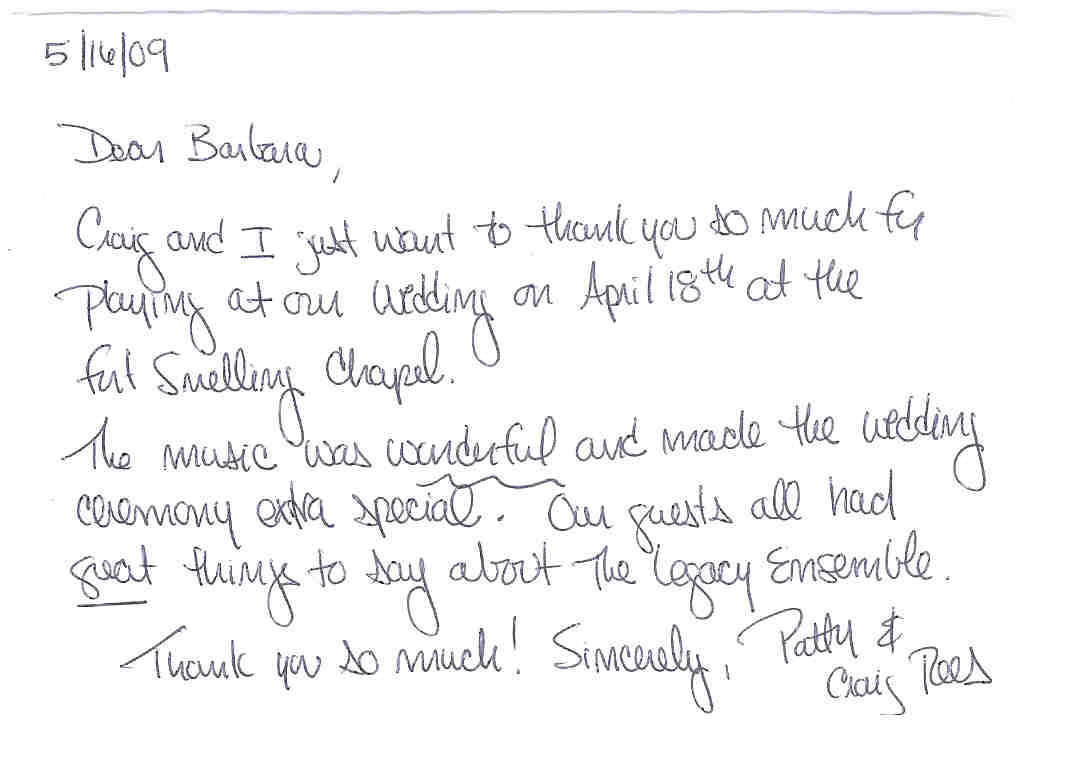 5/16/09
Dear Barbara,
Craig and I just want to thank you so much for
playing at our wedding on April 18th at the
fort Snelling Chapel.
The music was wonderful and made the wedding
ceremony extra special. Our guests all had
great things to say about The Legacy Ensemble.
Thank you so much! Sincerely, Patty &
Craig Rees